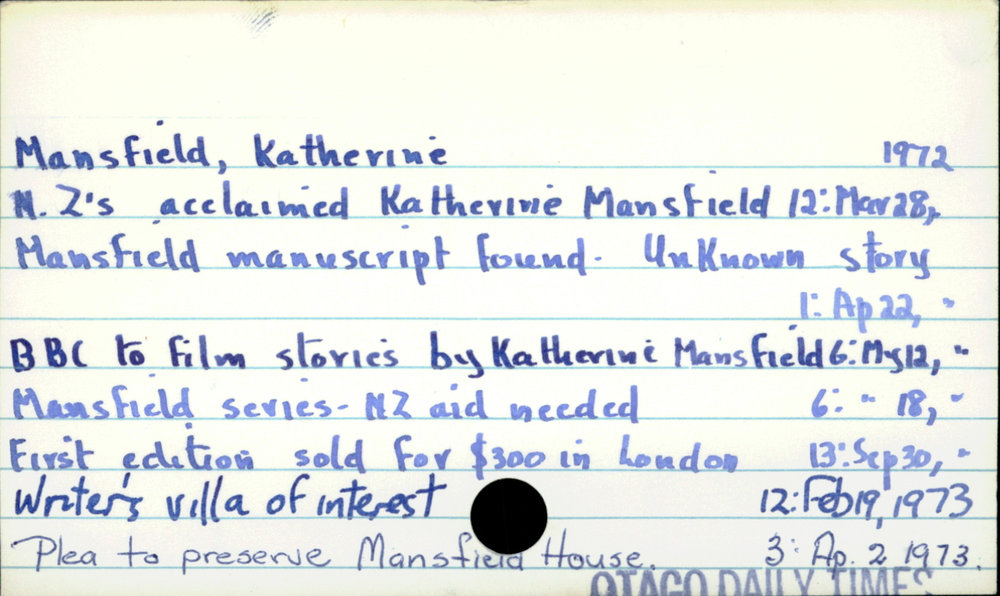 Mansfield, Katherine 1972
N.Z's acclaimed Katherine Mansfield 12:Mar28,"
Mansfield manuscript found. Unknown story
1: Ap 22, "
BBC to film stories by Katherine Mansfield 6:My12, "
Mansfield series - NZ aid needed 6: " 18, "
First edition sold for $300 in London 13:Sep30, "
Writer's villa of interest 12:Feb19,1973
Plea to preserve Mansfield House. 3: Ap. 2 1973.
OTAGO DAILY TIMES